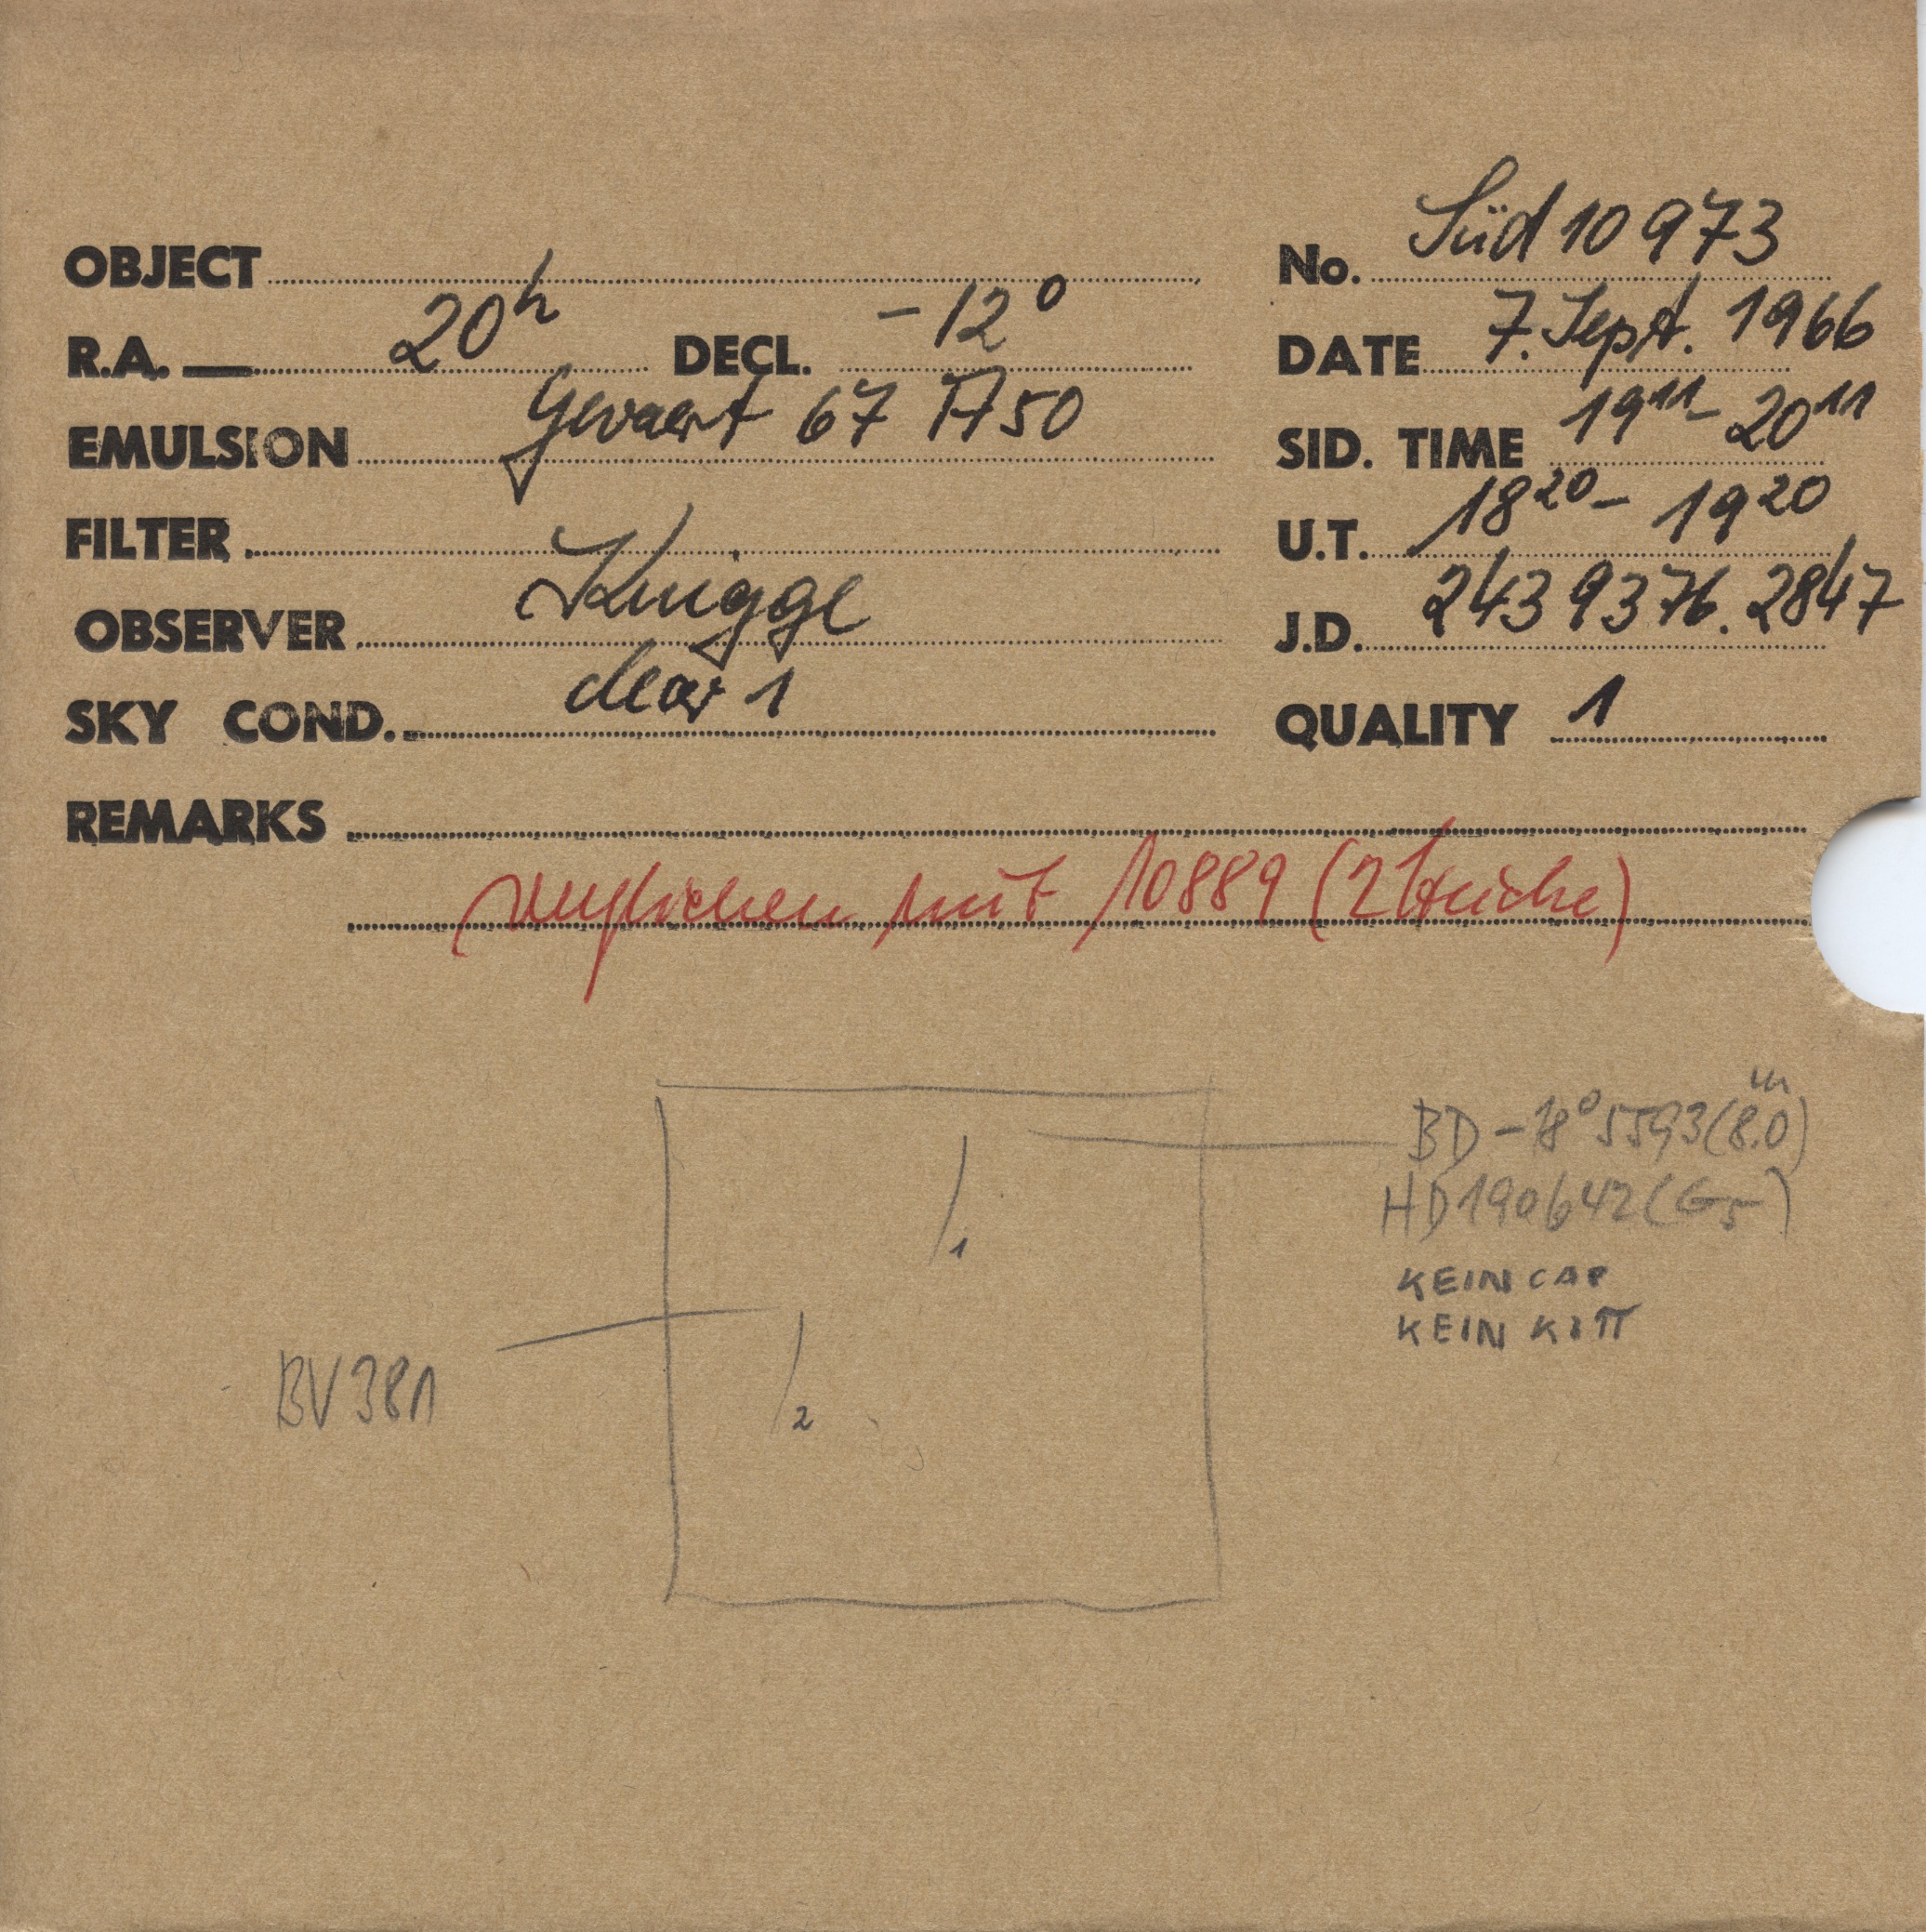 OBJECT
No. Süd 10973
R.A. 20h DECL. -12°
DATE 7. Sept. 1966
EMULSION Gevaert 67 A50
SID. TIME 19 11 - 20 11
FILTER
U.T. 18 20 - 19 20
OBSERVER Knigge
J.D. 243 9376.2847
SKY COND. clear 1
QUALITY 1
REMARKS
verglichen mit 10889 (2 Striche)
BD -18° 5593 (8.0m)
HD 190642 (G5)
1
KEIN CAP
KEIN KITT
BV 381
2